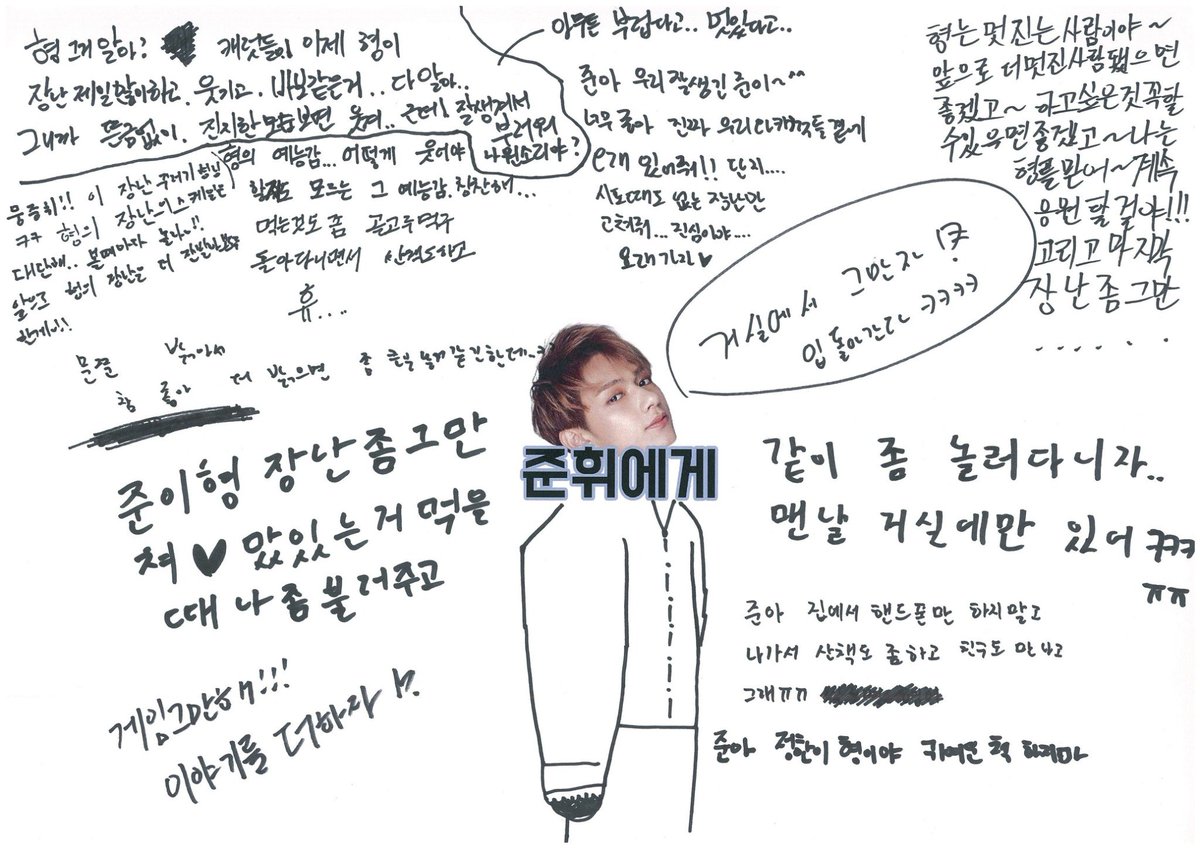 형 그거 알아? 캐럿들이 이제 형이
장난 제일 많이하고, 웃기고, 바보같은거.. 다 알아..
그니까 뜬금없이, 진지한 모습보면 웃겨.. 근데! 잘생겨서
부러워
나원소리야?
아무튼 부럽다고.. 멋있다고..
뭉준휘!! 이 장난꾸러기 형님
ㅋㅋ 형의 장난의 스케일은
대단해.. 볼때마다 놀라!!
앞으로 형의 장난을 더
한게이!!
형의 예능감... 어떻게 웃어야
할지도 모르는 그 예능감. 칭찬해...
먹는것도 좀 골고루 먹구
돌아다니면서 산책도하고
휴....
준아 우리 잘생긴 준이~^^
너무 좋아 진짜 우리 다 캐럿들 곁에
오래 있어줘!! 단지....
시도때도 없는 장난만
고쳐줘... 진심이야....
오래가자♥
형는 멋진는 사람이야~
앞으로 더 멋진 사람 됐으면
좋겠고~ 하고싶은것 꼭 할
수있으면 좋겠고~ 나는
형를 믿어~ 계속
응원 할 걸야!!!
고리고 마지막
장난 좀 그만
......
거실에서 그만자!?
입 돌아간다 ㅋㅋㅋㅋ
문준 밝아서
참 좋아 더 밝으면 좀
준이형 장난 좀 그만
쳐♥ 맜있는거 먹을
때 나 좀 불러주고
준휘에게
같이 좀 놀러다니자..
맨날 거실에만 있어 ㅋㅋㅋ
ㅠㅠ
준아 집에서 핸드폰만 하지말고
나가서 산책도 좀 하고 친구도 만나고
그래ㅠㅠ
준아 정한이 형이야 귀여운 척 하지마
게임그만해!!!
이야기를 더하자!?